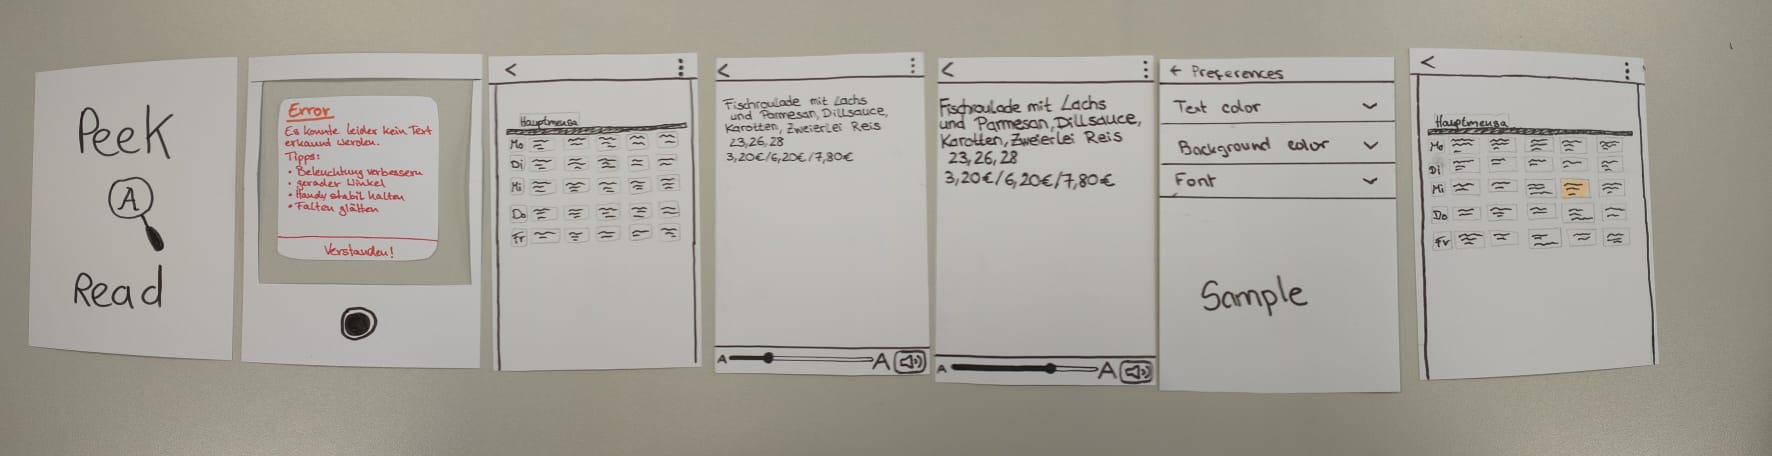 Peek
A
Read
Error
Es konnte leider kein Text
erkannt werden.
Tipps:
• Beleuchtung verbessern
• gerader Winkel
• Handy stabil halten
• Falten glätten
Verstanden!
<
Hauptmensa
Mo
Di
Mi
Do
Fr
<
Fischroulade mit Lachs
und Parmesan, Dillsauce,
Karotten, Zweierlei Reis
23,26,28
3,20€/6,20€/7,80€
A A
<
Fischroulade mit Lachs
und Parmesan, Dillsauce,
Karotten, Zweierlei Reis
23,26,28
3,20€/6,20€/7,80€
A A
← Preferences
Text color
Background color
Font
Sample
<
Hauptmensa
Mo
Di
Mi
Do
Fr